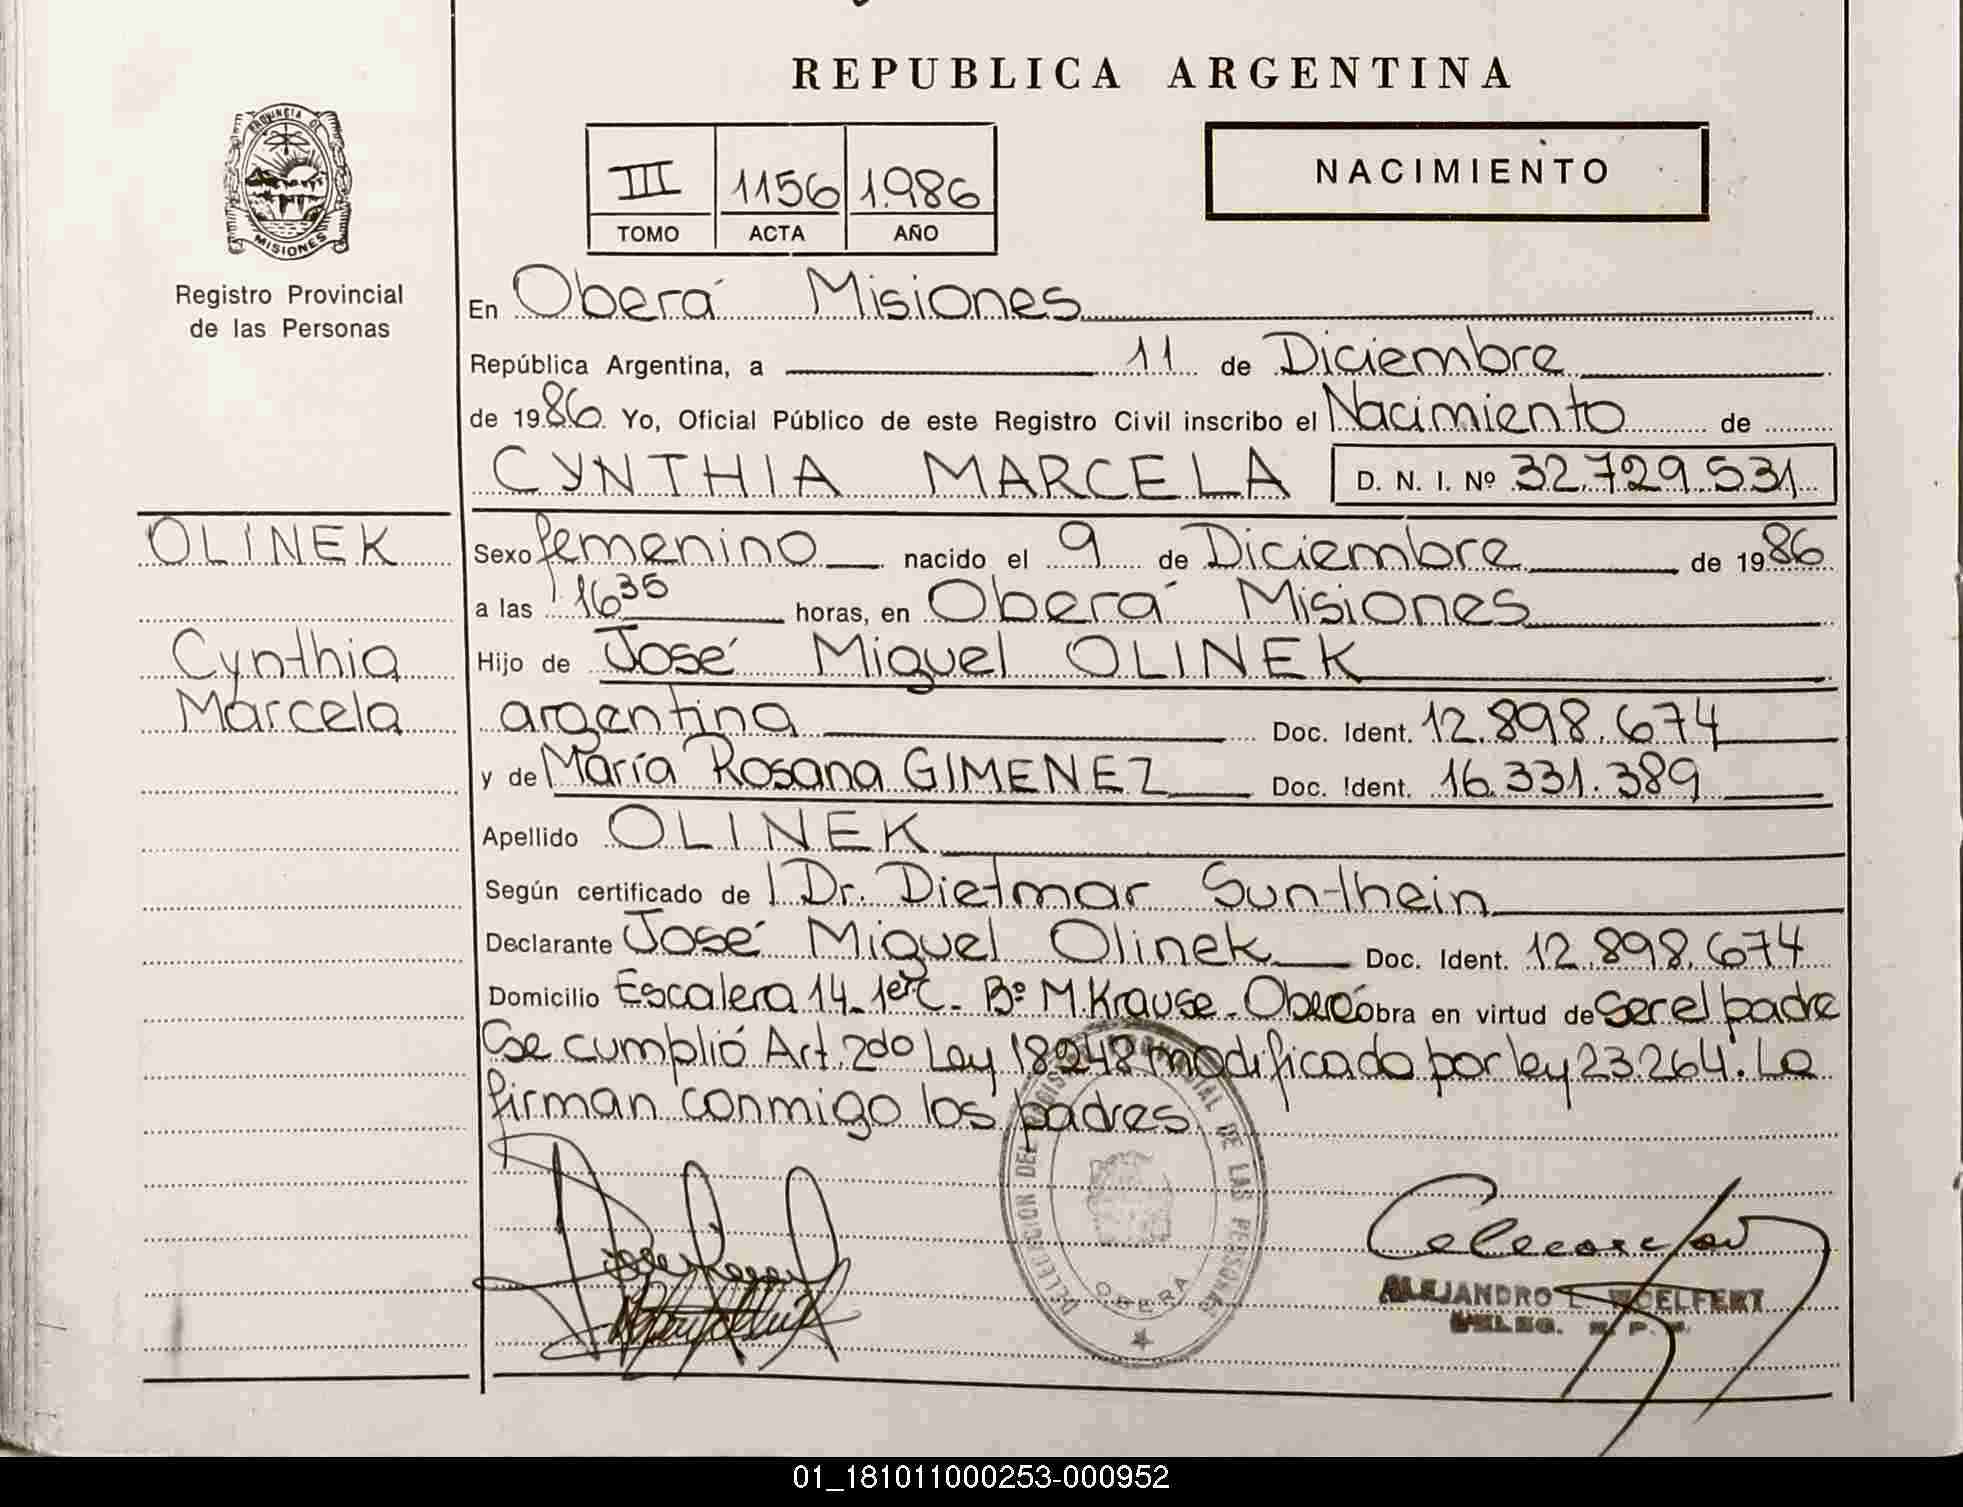 REPUBLICA ARGENTINA
PROVINCIA DE
MISIONES
Registro Provincial
de las Personas
III 1156 1.986
TOMO ACTA AÑO
NACIMIENTO
En Oberá Misiones
República Argentina, a 11 de Diciembre
de 1986 Yo, Oficial Público de este Registro Civil inscribo el Nacimiento de
CYNTHIA MARCELA D. N. I. Nº 32.729.531
OLINEK
Cynthia
Marcela
Sexo femenino nacido el 9 de Diciembre de 1986
a las 16 35 horas, en Oberá Misiones
Hijo de José Miguel OLINEK
argentina Doc. Ident. 12.898.674
y de María Rosana GIMENEZ Doc. Ident. 16.331.389
Apellido OLINEK
Según certificado de Dr. Dietmar Sunthein
Declarante José Miguel Olinek Doc. Ident. 12.898.674
Domicilio Escalera 14_1erC_ Bº M.Krause_Oberá obra en virtud de ser el padre
Se cumplió Art. 2do Ley 18248 modificado por ley 23.264. La
firman conmigo los padres
DE LAS PERSONAS
OBERA
ALEJANDRO L. WOELFERT
DELEG.
01_181011000253-000952